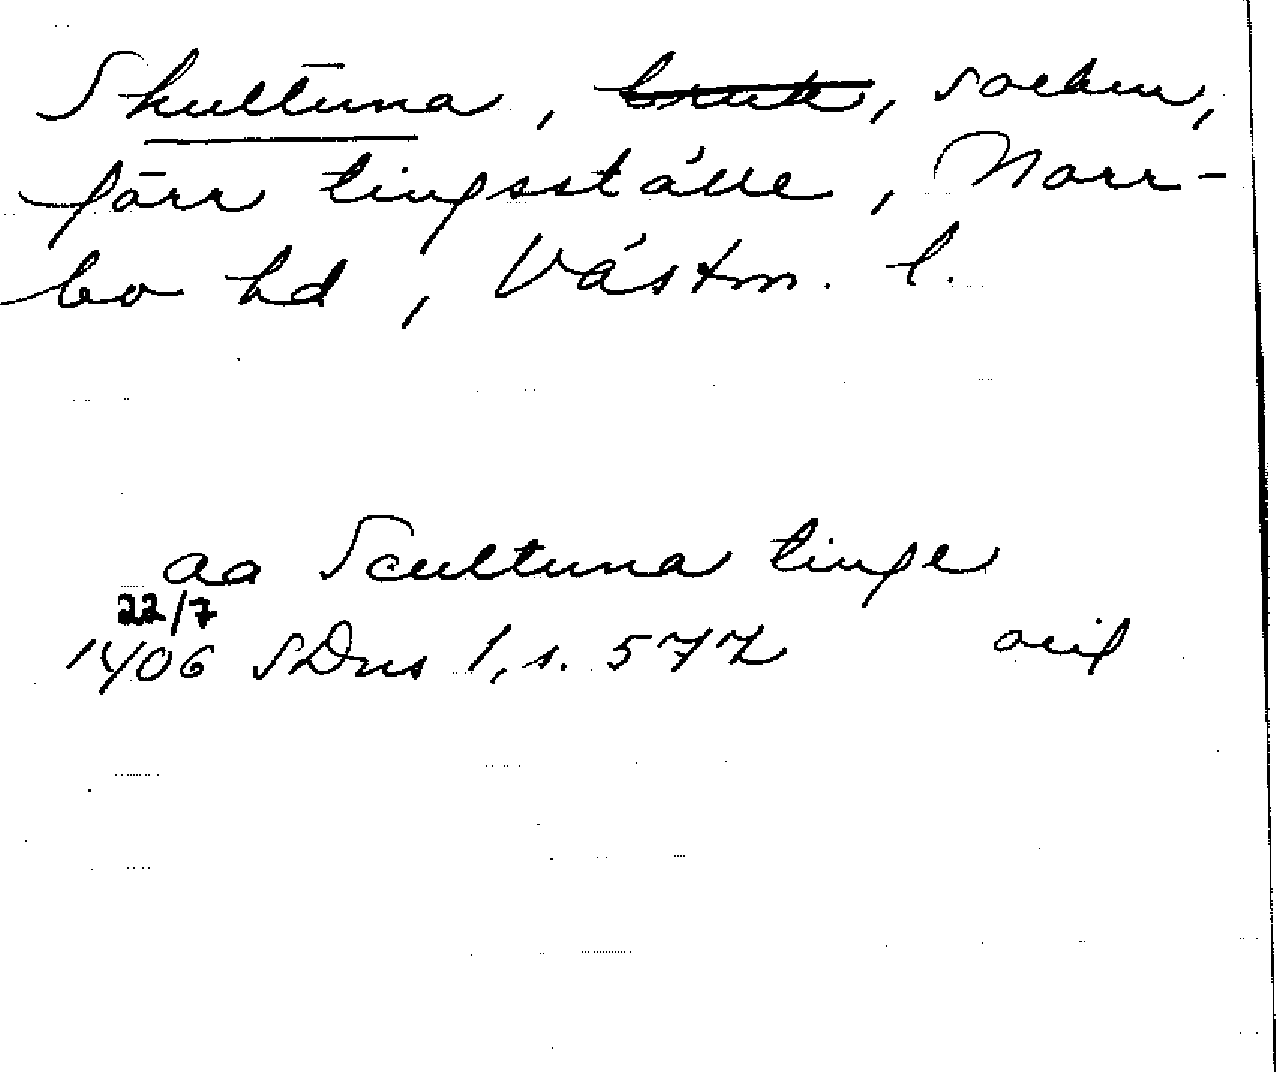 Skultuna, bruk, socken,
förr tingsställe, Norr-
bo hd, Västm. l.
aa Scultuna tinge
22/7
1406 SDns 1, s. 577 orig